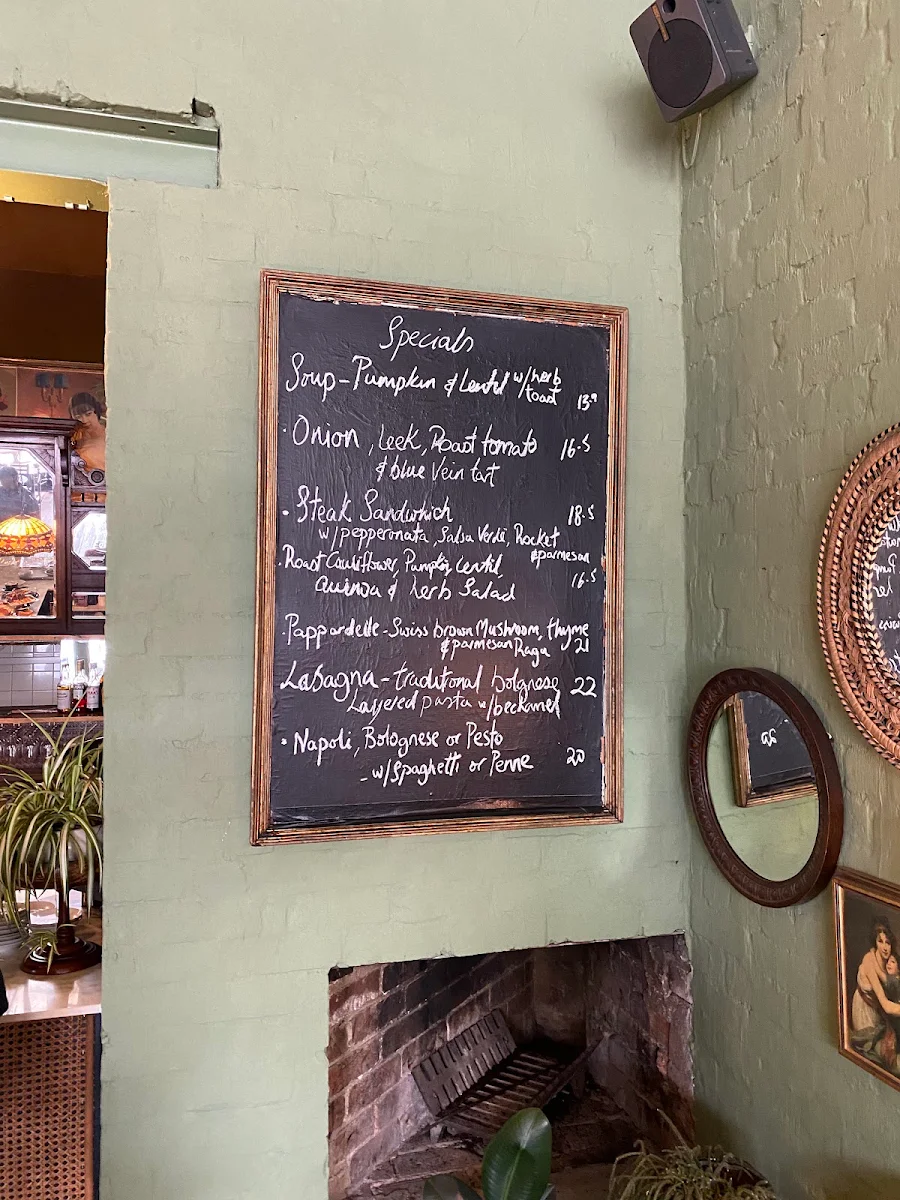 Specials
Soup - Pumpkin & Lentil w/herb
toast 13.9
Onion, Leek, Roast tomato 16.5
& blue Vein tart
Steak Sandwhich 18.5
w/pepperonata, Salsa Verde, Rocket
& parmesan
Roast Cauliflower, Pumpkin, Lentil, 16.5
Quinoa & herb Salad
Pappardelle - Swiss brown Mushroom, thyme
& parmesan Ragu 21
Lasagna - traditional bolgnese 22
Layered pasta w/bechamel
Napoli, Bolognese or Pesto 20
- w/Spaghetti or Penne